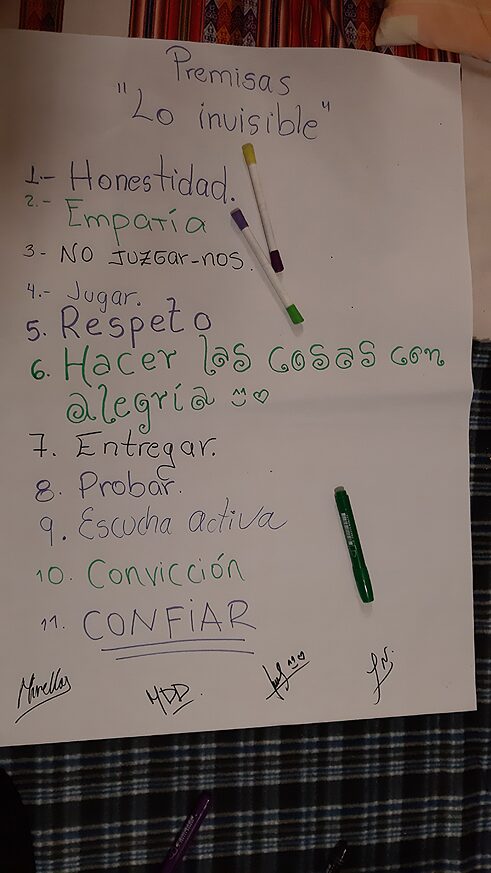 Premisas
"Lo invisible"
1.- Honestidad.
2.- Empatía
3- NO JUZGAR-NOS.
4.- Jugar.
5. Respeto
6. Hacer las cosas con
alegría
7. Entregar.
8. Probar.
9. Escucha activa
10. Convicción
11. CONFiAR
MDD.